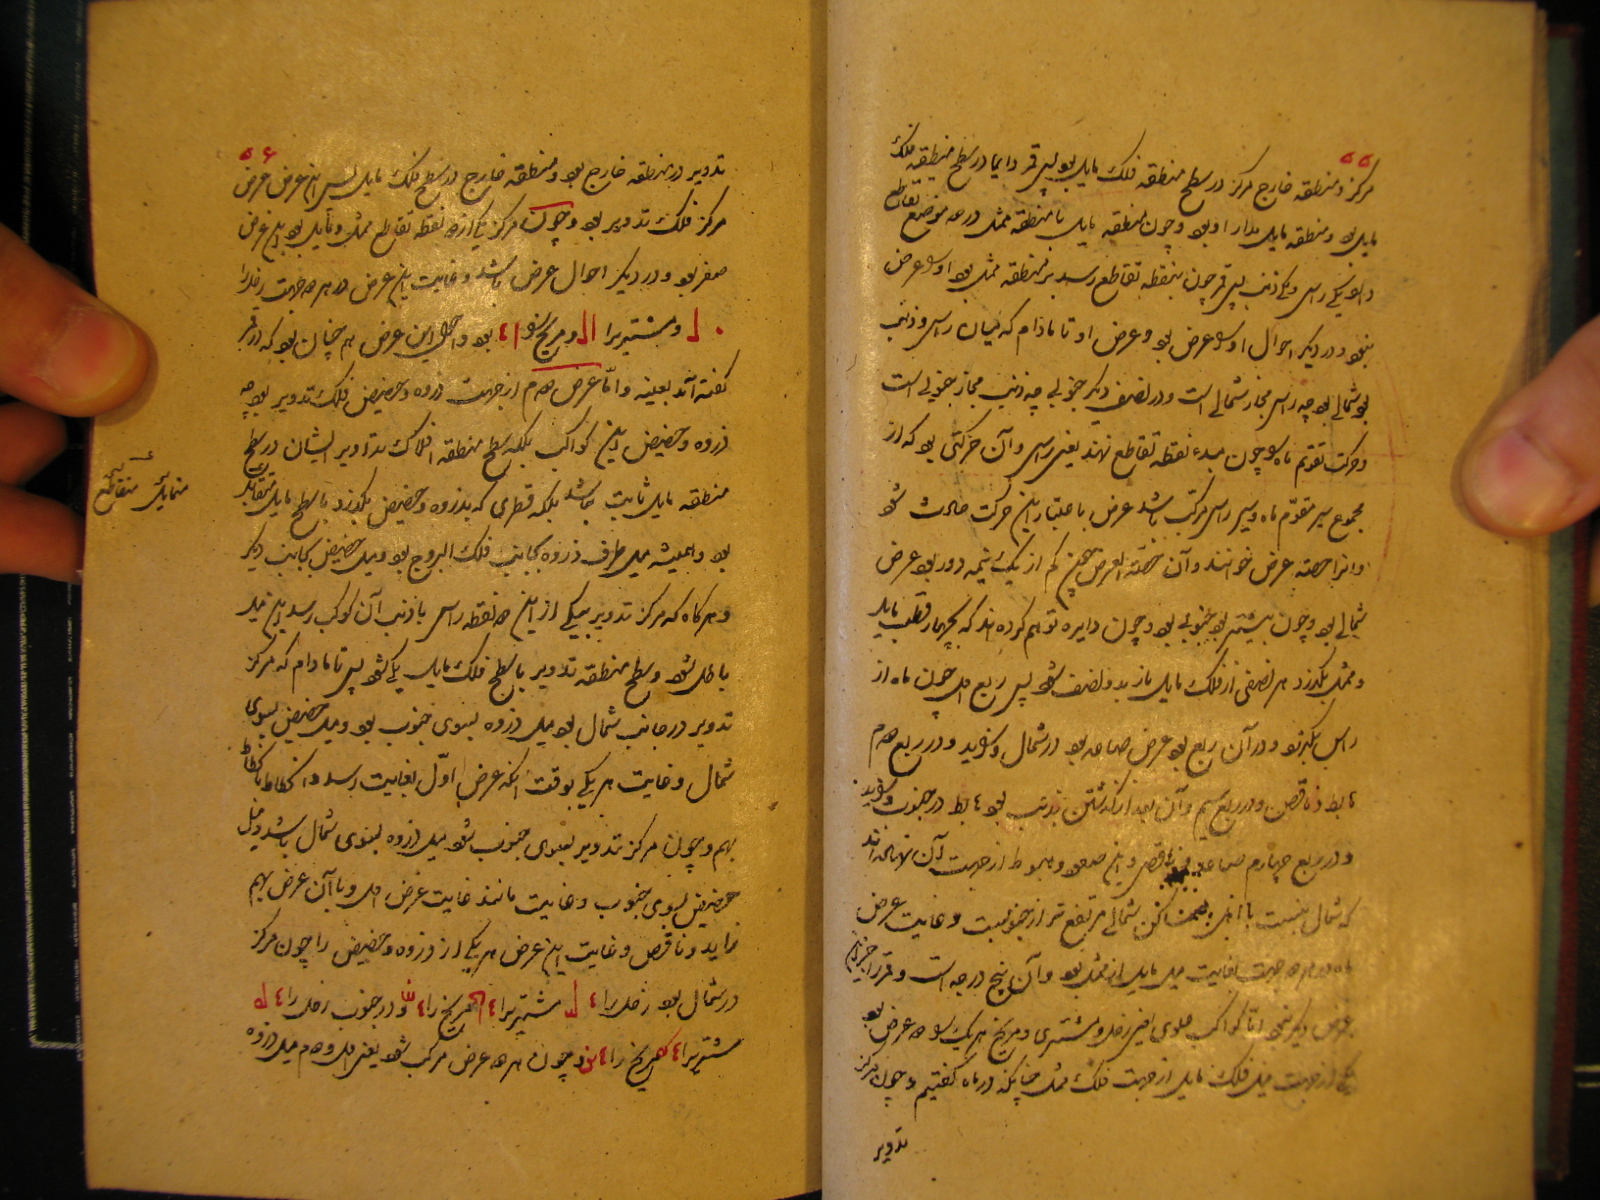 ۵۵
مرکز و منطقه خارج مرکز در سطح منطقه فلک مایل بود پس قمر دایما در سطح منطقه فلک
مایل بود و منطقه مایل مدار او بود و چون منطقه مایل با منطقه ممثل در دو موضع تقاطع
دارد یکی راس و یکی ذنب پس قمر چون بنقطه تقاطع رسد بر منطقه ممثل بود او را عرض
نبود و در دیگر احوال او را عرض بود و عرض او تا مادام که میان راس و ذنب
بود شمالی بود چه راس مجاز شمالی است و در نصف دیگر جنوبی چه ذنب مجاز جنوبی است
و حرکت تقویم ماه را چون مبدء نقطه تقاطع نهند یعنی راس و آن حرکتی بود که از
مجموع سیر مقوّم ماه و سیر راس مرکب باشد عرض باعتبار این حرکت حادث شود
و انرا حصه عرض خوانند و آن حصّة العرض چون کم از یک نیمه دور بود عرض
شمالی بود و چون بیشتر بود جنوبی بود و چون دایره توهم کرده اند که بچهار قطب مایل
و ممثل بگذرد هر نصفی از فلک مایل باز بدو نصف شود پس ربع اول چون ماه از
راس بگذرد و در آن ربع بود عرض صاعد بود در شمال و زاید و در ربع دوم
هابط و ناقص و در ربع سیم و آن بعد از گذشتن بذنب بود هابط در جنوب و زاید
و در ربع چهارم صاعد و ناقص و این صعود و هبوط از جهت آن نهاده اند
که شمال بنسبت با این مساکن شمالی مرتفع تر از جنوبست و غایت عرض
ماه در هر دو جهت بغایت میل مایل از ممثل بود و آن پنج درجه است و قمر را جز این
عرض دیگر نبود امّا کواکب علوی یعنی زحل و مشتری و مریخ هر یک را دو عرض بود
یکی از جهت میل فلک مایل از جهت فلک ممثل چنانکه در ماه گفتیم و چون مرکز
تدویر
۵۶
تدویر در منطقه خارج بود و منطقه خارج در سطح فلک مایل پس این عرض عرض
مرکز فلک تدویر بود و چون مرکز یکی از دو نقطه تقاطع ممثل و مایل بود این عرض
صفر بود و در دیگر احوال عرض باشد و غایت این عرض در هر دو جهت زحل را
ل و مشتری را ا ل و مریخ را ا ء بود و احوال این عرض هم چنان بود که در قمر
گفته آمد بعینه و امّا عرض دوم از جهت ذروه و حضیض فلک تدویر بود چه
ذروه و حضیض این کواکب بلکه سطح منطقه افلاک تداویر ایشان در سطح
منطقه مایل ثابت نباشد بلکه قطری که بذروه و حضیض بگذرد با سطح مایل متقاطع
بود و همیشه میل طرف ذروه بجانب فلک البروج بود و میل حضیض بجانب دیگر
و هر گاه که مرکز تدویر بیکی از این دو نقطه راس یا ذنب آن کوکب رسد این میل
باطل شود و سطح منطقه تدویر با سطح فلک مایل یکی شود پس تا مادام که مرکز
تدویر در جانب شمال بود میل ذروه بسوی جنوب بود و میل حضیض بسوی
شمال و غایت هر یکی بوقت آنکه عرض اوّل بغایت رسد و انحطاط با انحطاط
بهم و چون مرکز تدویر بسوی جنوب شود میل ذروه بسوی شمال باشد و میل
حضیض بسوی جنوب و غایت مانند غایت عرض اول و با آن عرض بهم
زاید و ناقص و غایت این عرض هر یکی از ذروه و حضیض را چون مرکز
در شمال بود زحل را ء ل مشتری را ء مریخ را ء و در جنوب زحل را ء له
مشتری را ء مریخ را ء و چون هر دو عرض مرکب شود یعنی اول و دوم میل ذروه
متمایل متقاطع